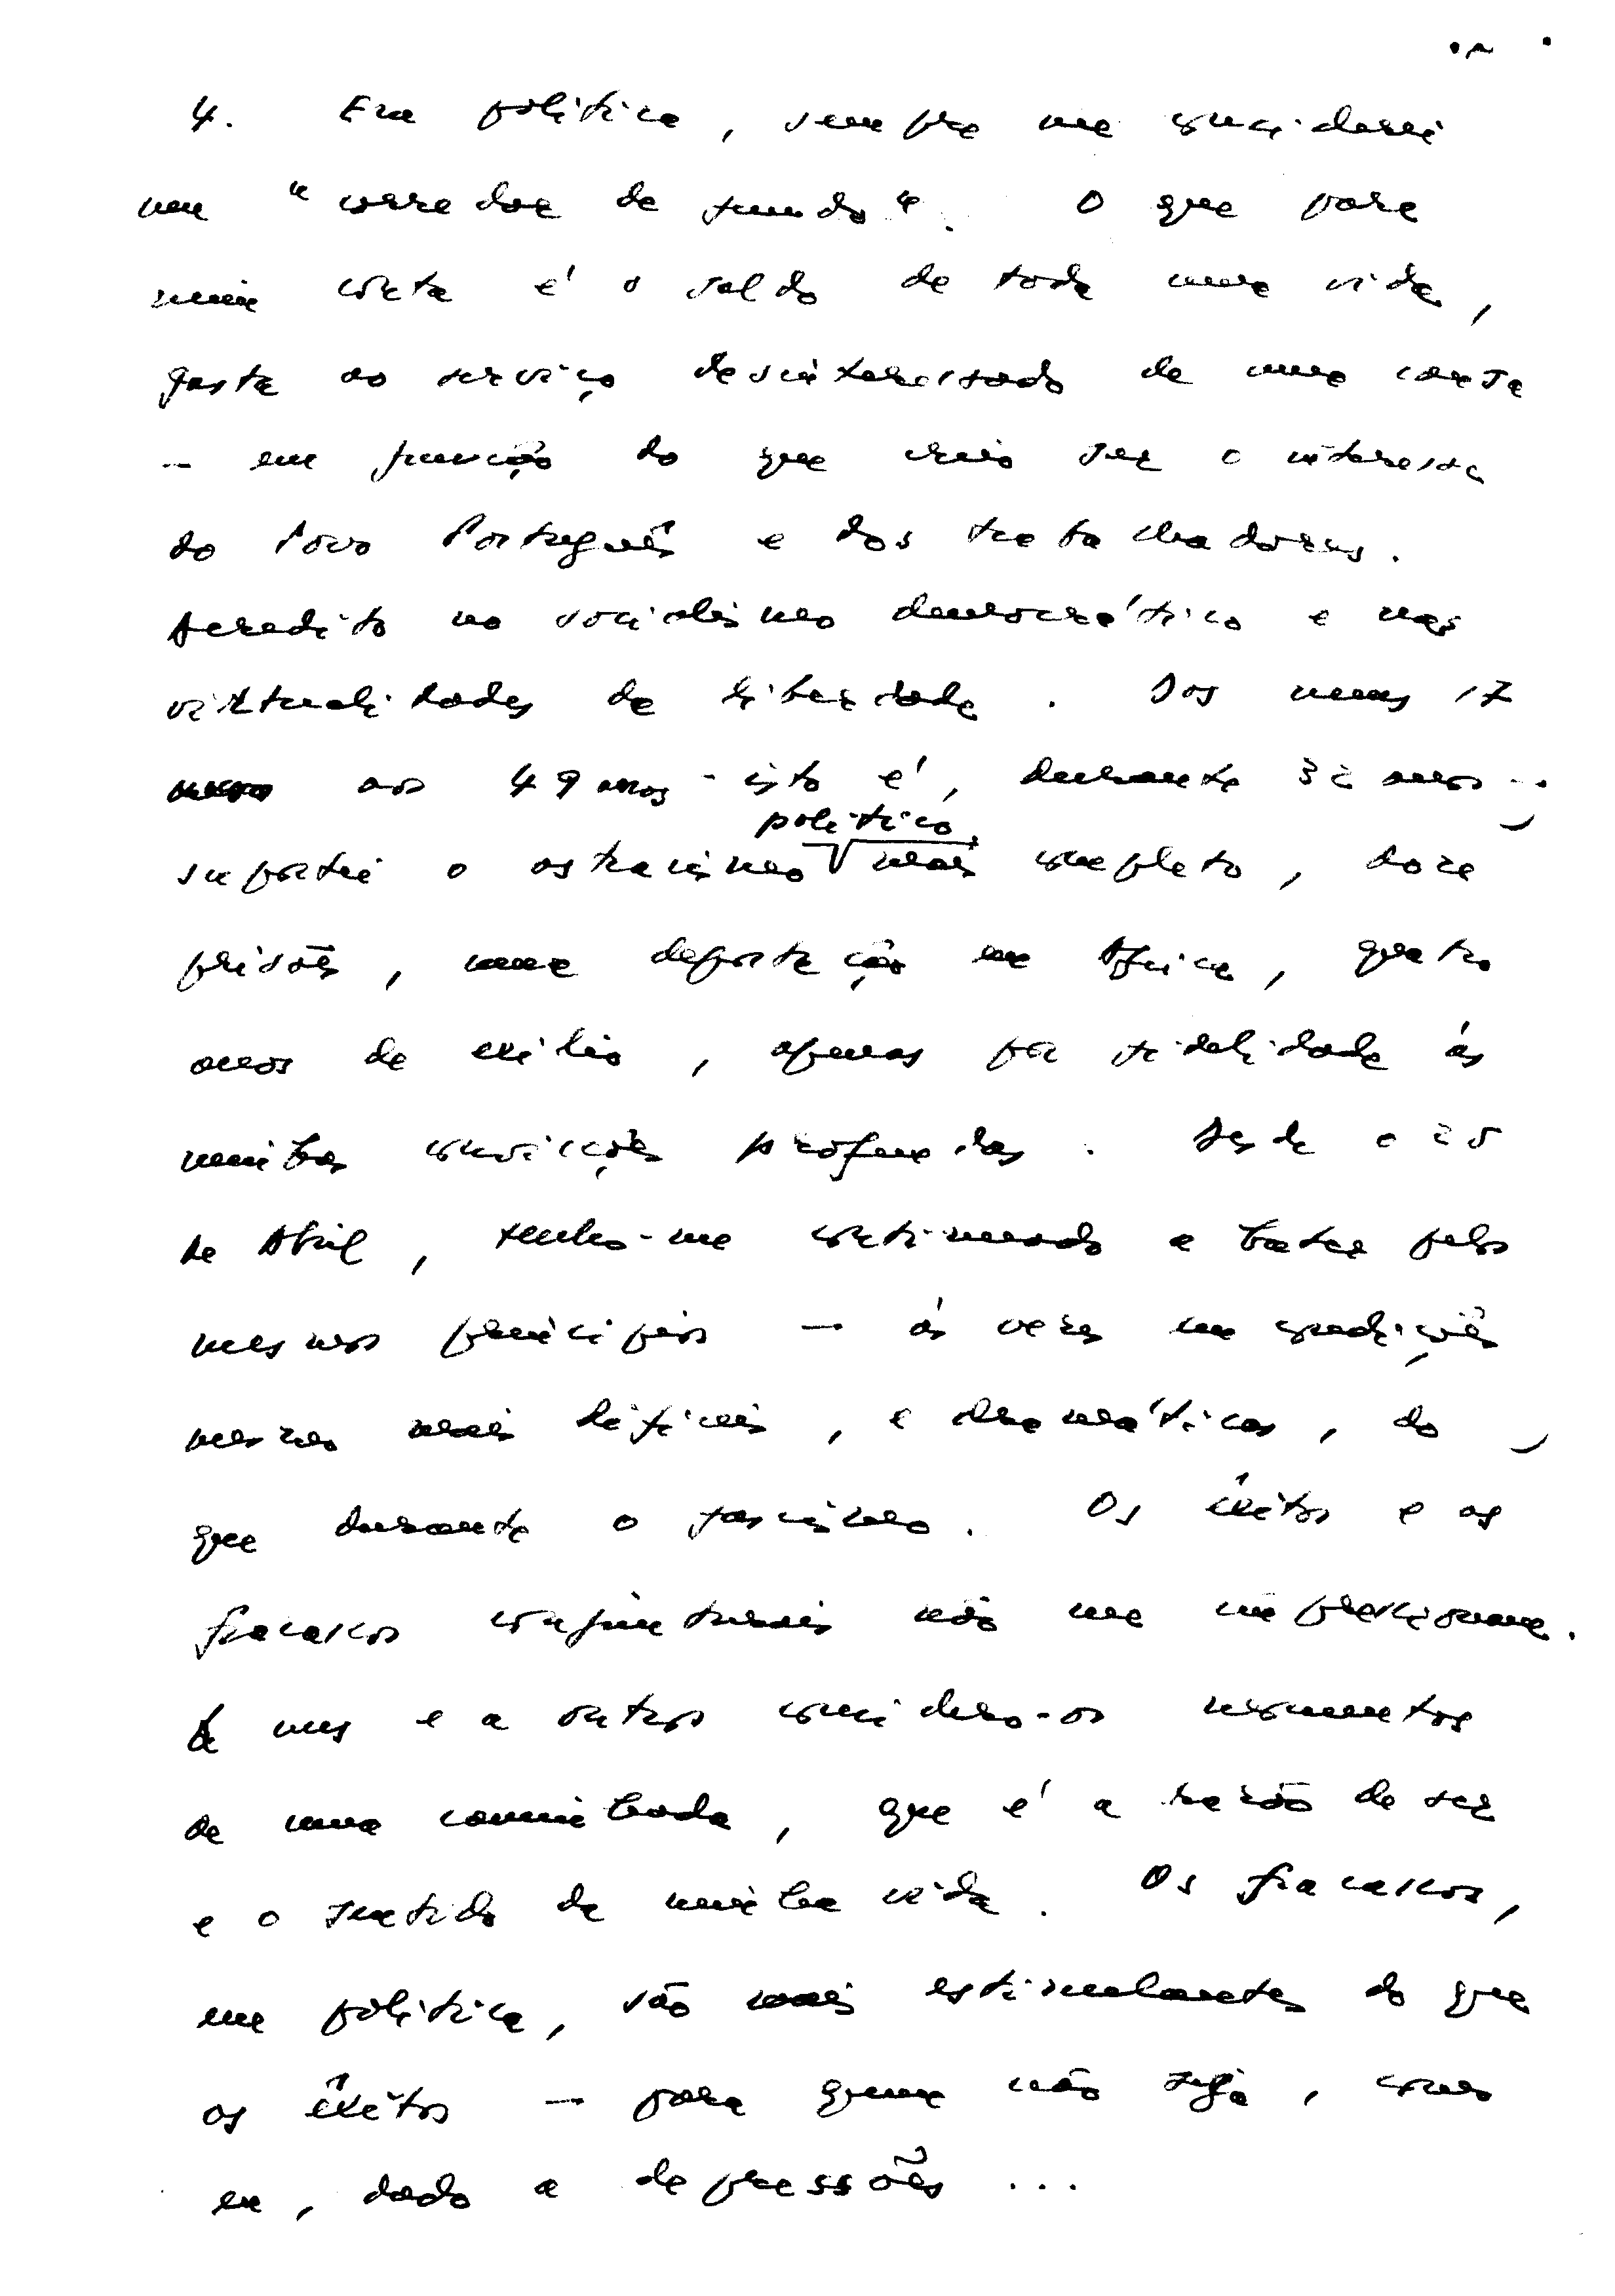 4. Em política, sempre me considerei
um "corredor de fundo". O que para
mim conta é o saldo de toda uma vida,
gasta ao serviço desinteressado de uma causa
— em função do que creio ser o interesse
do Povo Português e dos trabalhadores.
Acredito no socialismo democrático e nas
virtualidades da liberdade. Dos meus 17
aos 49 anos - isto é, durante 32 anos -
político
suportei o ostracismo mais completo, doze
prisões, uma deportação em África, quatro
anos de exílio, apenas por fidelidade às
minhas convicções profundas. Desde o 25
de Abril, tenho-me continuado a bater pelos
mesmos princípios — às vezes em condições
mesmo mais difíceis, e dramáticas, do
que durante o fascismo. Os êxitos e os
fracassos conjunturais não me impressionam.
A uns e a outros considero-os momentos
de uma caminhada, que é a razão de ser
e o sentido da minha vida. Os fracassos,
em política, são mais estimulantes do que
os êxitos — para quem não seja, como
eu, dado a depressões ...